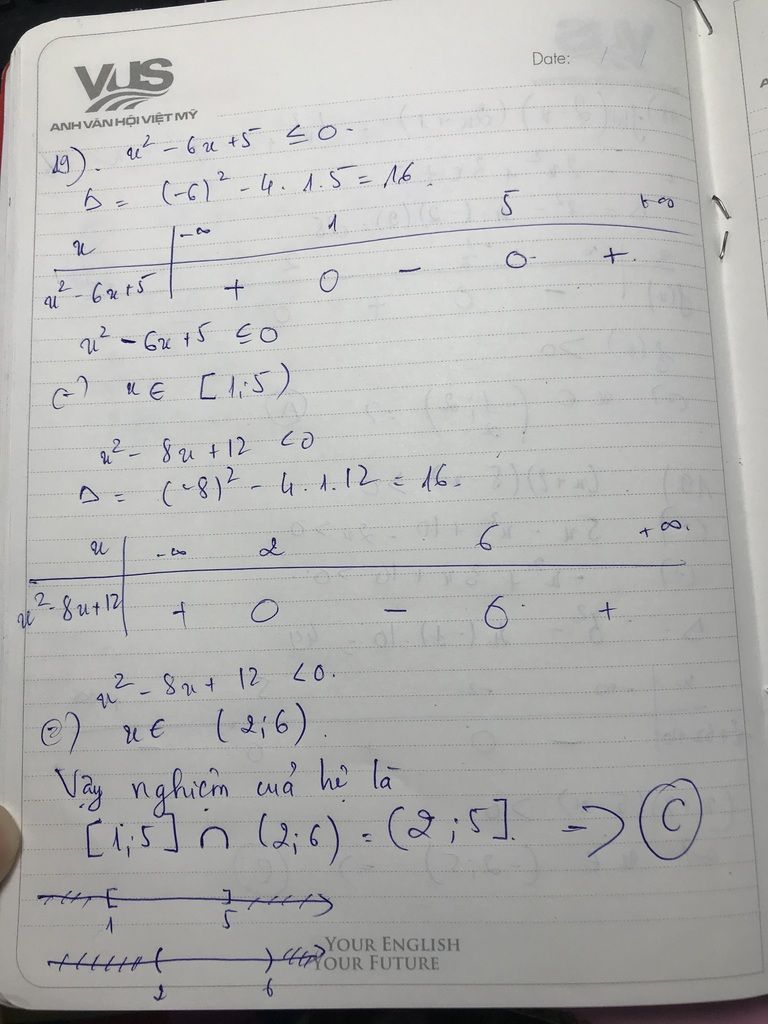 VUS
ANH VĂN HỘI VIỆT MỸ
Date: / /
19). x² - 6x + 5 ≤ 0.
Δ = (-6)² - 4.1.5 = 16.
x -∞ 1 5 +∞
x² - 6x + 5 + 0 - 0 +.
x² - 6x + 5 ≤ 0
(=) x ∈ [1;5)
x² - 8x + 12 < 0
Δ = (-8)² - 4.1.12 = 16.
x -∞ 2 6 +∞.
x² - 8x + 12 + 0 - 0 +
x² - 8x + 12 < 0.
(=) x ∈ (2;6)
Vậy nghiệm cuả hệ là
[1;5] ∩ (2;6) = (2;5]. => C
[ ]
1 5
( )
2 6
YOUR ENGLISH
YOUR FUTURE